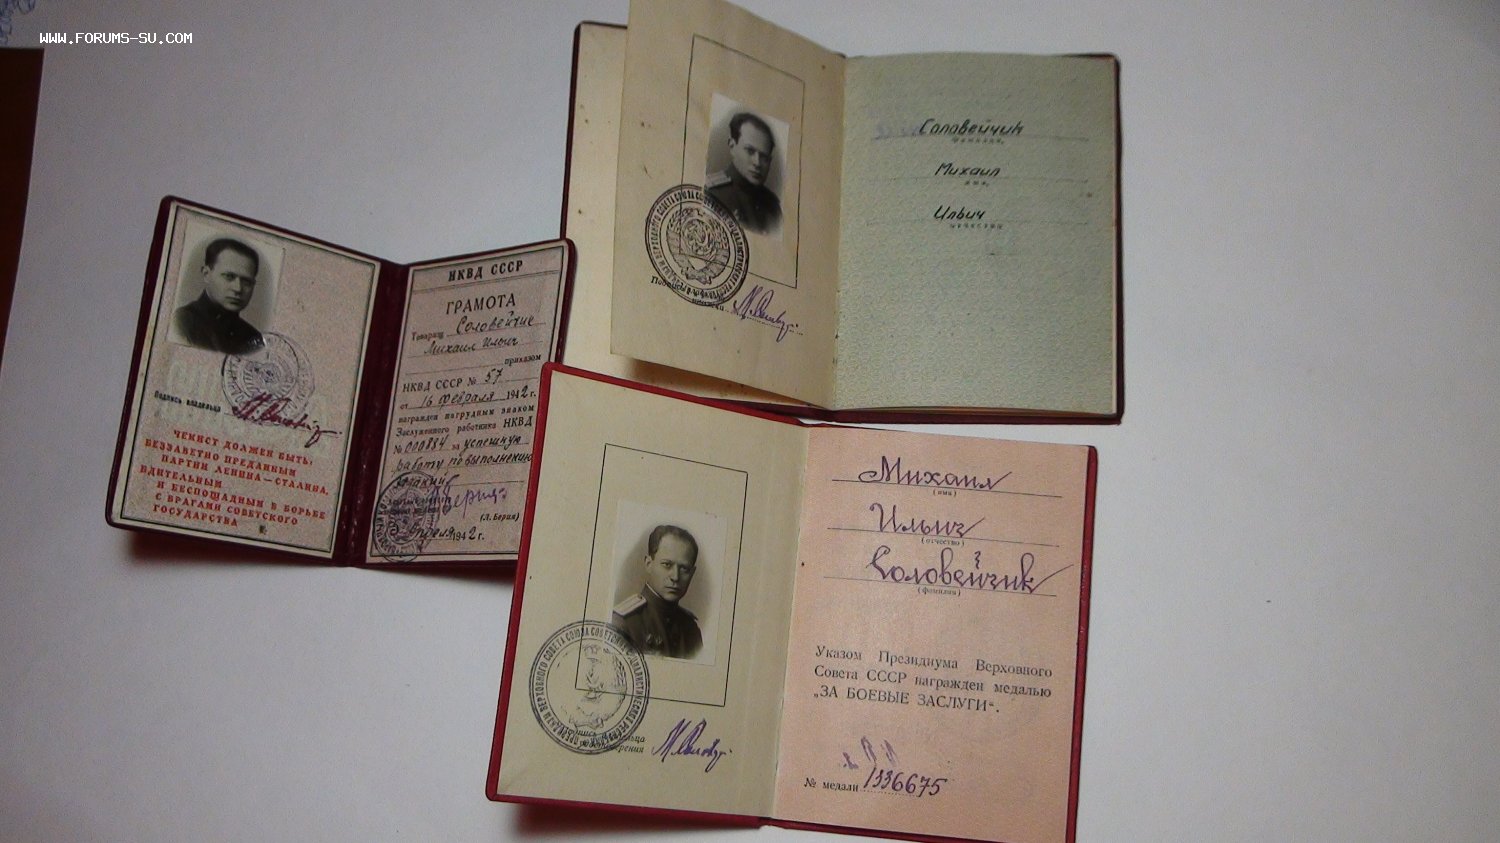 WWW.FORUMS-SU.COM
Соловейчик
фамилия,
Михаил
имя,
Ильич
отчество
НКВД СССР
ГРАМОТА
Товарищ Соловейчик
Михаил Ильич
приказом
НКВД СССР № 57
от 16 февраля 1942 г.
награжден нагрудным знаком
Заслуженного работника НКВД
№ 000884 за успешную
работу по выполнению
(Л. Берия)
1942 г.
Подпись владельца
ЧЕКИСТ ДОЛЖЕН БЫТЬ:
БЕЗЗАВЕТНО ПРЕДАННЫМ
ПАРТИИ ЛЕНИНА — СТАЛИНА,
БДИТЕЛЬНЫМ
И БЕСПОЩАДНЫМ В БОРЬБЕ
С ВРАГАМИ СОВЕТСКОГО
ГОСУДАРСТВА
Михаил
(имя)
Ильич
(отчество)
Соловейчик
(фамилия)
Указом Президиума Верховного
Совета СССР награжден медалью
„ЗА БОЕВЫЕ ЗАСЛУГИ“.
№ медали 1336675